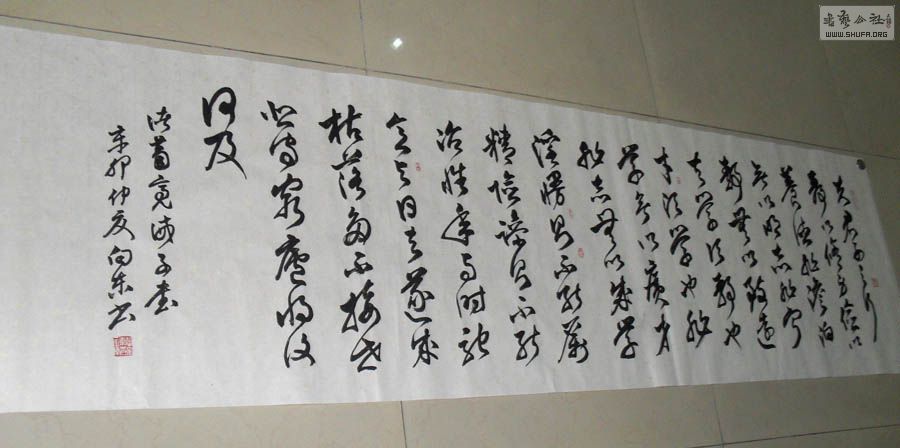 夫君子之行
静以修身俭以
养德非澹泊
无以明志非宁
静无以致远
夫学须静也
才须学也非
学无以广才
非志无以成学
淫慢则不能励
精险躁则不能
治性年与时驰
意与日去遂成
枯落多不接世
悲守穷庐将复
何及
诸葛亮诫子书
辛卯仲夏向东书
书艺公社
WWW.SHUFA.ORG